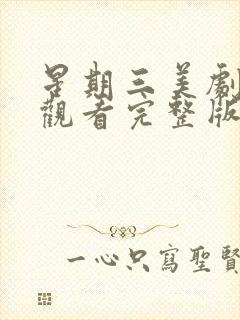 星期三美劇
觀看完整版
一心只寫聖賢